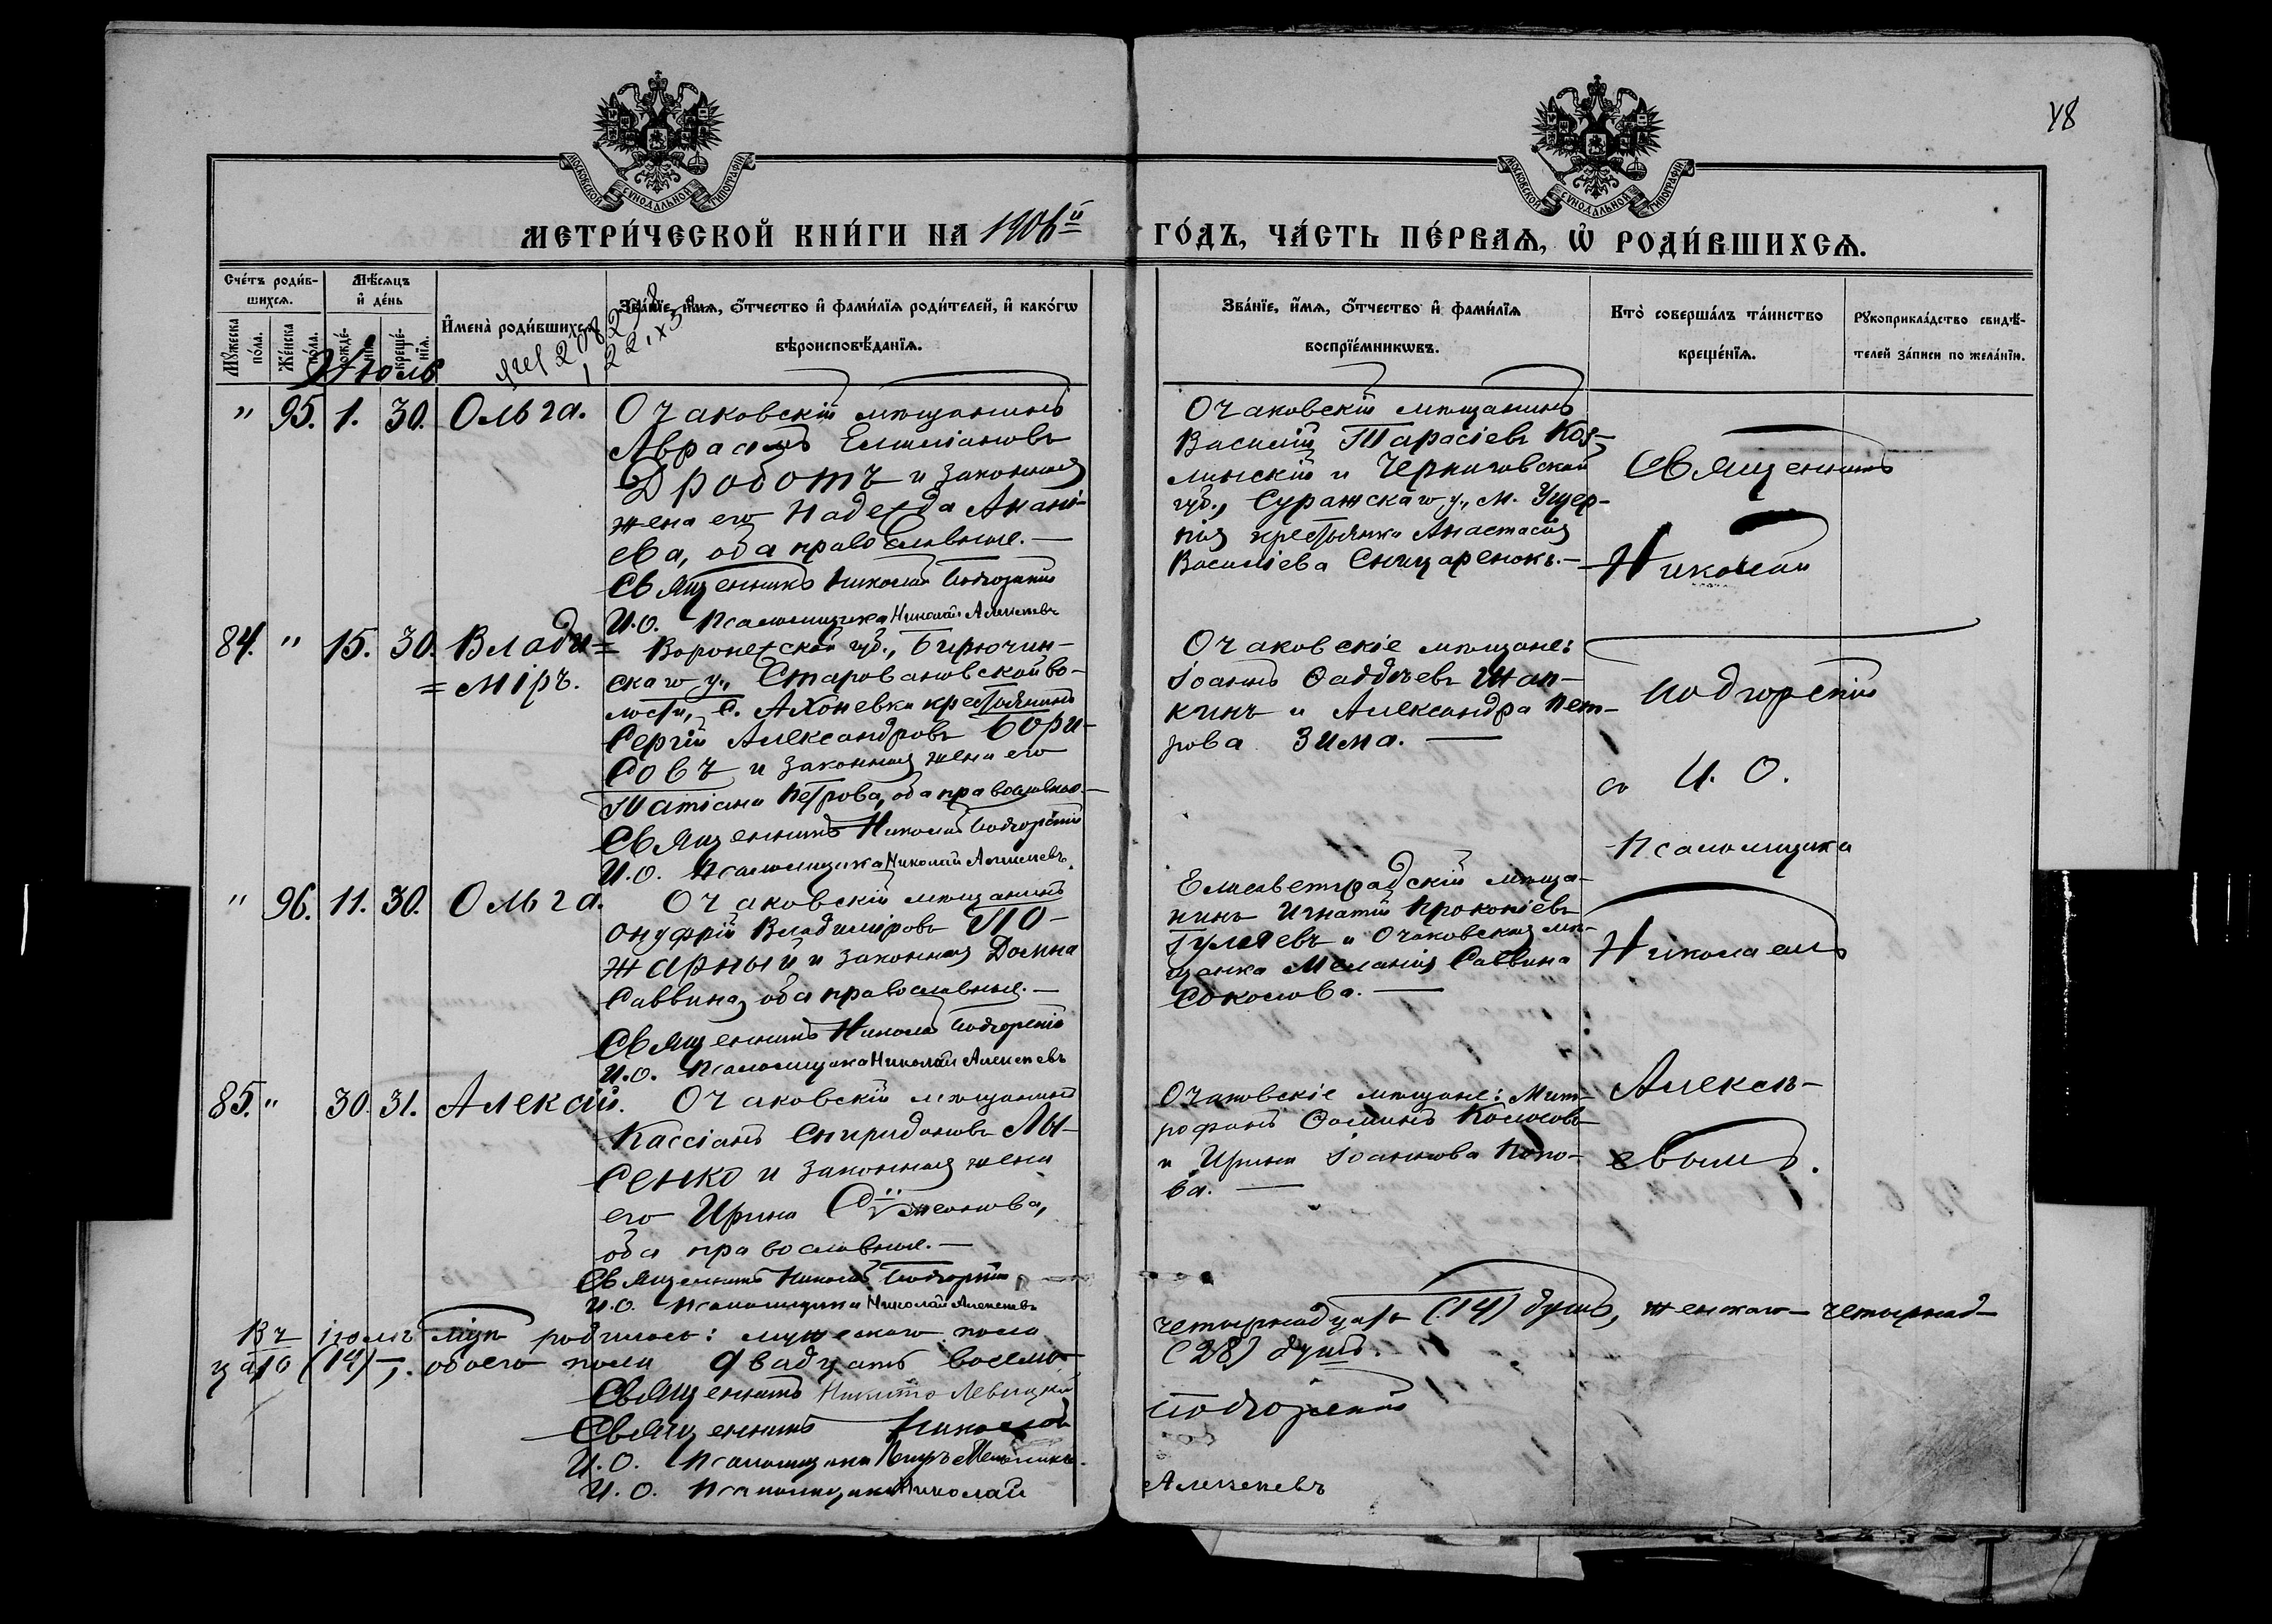 48
МОСКОВСКОЙ СѴНОДАЛЬНОЙ ТИПОГРАФІИ
МОСКОВСКОЙ СѴНОДАЛЬНОЙ ТИПОГРАФІИ
МЕТРИ́ЧЕСКОЙ КНИ́ГИ НА 1906й ГО́ДЪ, ЧА́СТЬ ПЕ́РВАѦ, Ѡ҆ РОДИ́ВШИХСѦ.
Сче́тъ роди́в-
шихсѧ.
Мѣ́сѧцъ
и҆ де́нь
Мꙋ́жеска
по́ла.
Же́нска
по́ла.
рожде́-
нїѧ.
креще́-
нїѧ.
И҆мена̀ роди́вшихсѧ.
Зва́нїе, и҆́мѧ, ѻ҆́тчество и҆ фами́лїѧ роди́телей, и҆ како́гѡ
вѣроисповѣ́данїѧ.
Зва́нїе, и҆́мѧ, ѻ҆́тчество и҆ фами́лїѧ
воспрїе́мникѡвъ.
Кто̀ соверша́лъ та́инство
креще́нїѧ.
Рꙋкоприкла́дство свидѣ́-
телей за́писи по жела́нїю.
Іюль
" 95. 1. 30. Ольга.
Очаковскій мѣщанинъ
Авраамъ Емиліановъ
Дроботъ и законная
жена его Надежда Анані-
ева, оба православные. —
Священникъ Николай Подгорскій
И.О. Псаломщика Николай Алексѣевъ
Очаковскій мѣщанинъ
Василій Тарасіевъ Коз-
линскій и Черниговской
губ., Суражскаго у., м. Ущер-
пія крестьянка Анастасія
Василіева Сницаренокъ. —
84. " 15. 30. Влади=
=міръ.
Воронежской губ., Бирючин-
скаго у., Старовановской во-
лости, с. Афоневки крестьянинъ
Сергій Александровъ Бори-
совъ и законная жена его
Татіана Петрова, оба православные. —
Священникъ Николай Подгорскій
И.О. Псаломщика Николай Алексѣевъ
Очаковскіе мѣщане:
Іоаннъ Фаддѣевъ Жап-
кинъ и Александра Пет-
рова Зима. —
" 96. 11. 30. Ольга.
Очаковскій мѣщанинъ
Онуфрій Владиміровъ По-
жарный и законная Домна
Саввина, оба православные. —
Священникъ Николай Подгорскій
И.О. Псаломщика Николай Алексѣевъ
Елисаветградскій мѣща-
нинъ Игнатій Прокопіевъ
Гуляевъ и Очаковская мѣ-
щанка Меланія Саввина
Соколова. —
85. " 30. 31. Алексій.
Очаковскій мѣщанинъ
Кассіанъ Спиридоновъ Лы-
сенко и законная жена
его Ирина
оба православные. —
Священникъ Николай Подгорскій
И.О. Псаломщика Николай Алексѣевъ
Очаковскіе мѣщане: Мит-
рофанъ Ѳоминъ Колосовъ
и Ирина Іоаннова Попо-
ва. —
Священникъ
Николай
Подгорскій
съ И. О.
Псаломщика
Николаемъ
Алексѣ-
евымъ.
Въ іюлѣ мѣсяцѣ родилось: мужескаго пола четырнадцать (14) душъ, женскаго — четырнад-
цать (14) —, обоего пола двадцать восемь (28) душъ.
Священникъ Никита Левицкій
Священникъ Николай Подгорскій
И.О. Псаломщика Петръ
И.О. Псаломщика Николай Алексѣевъ